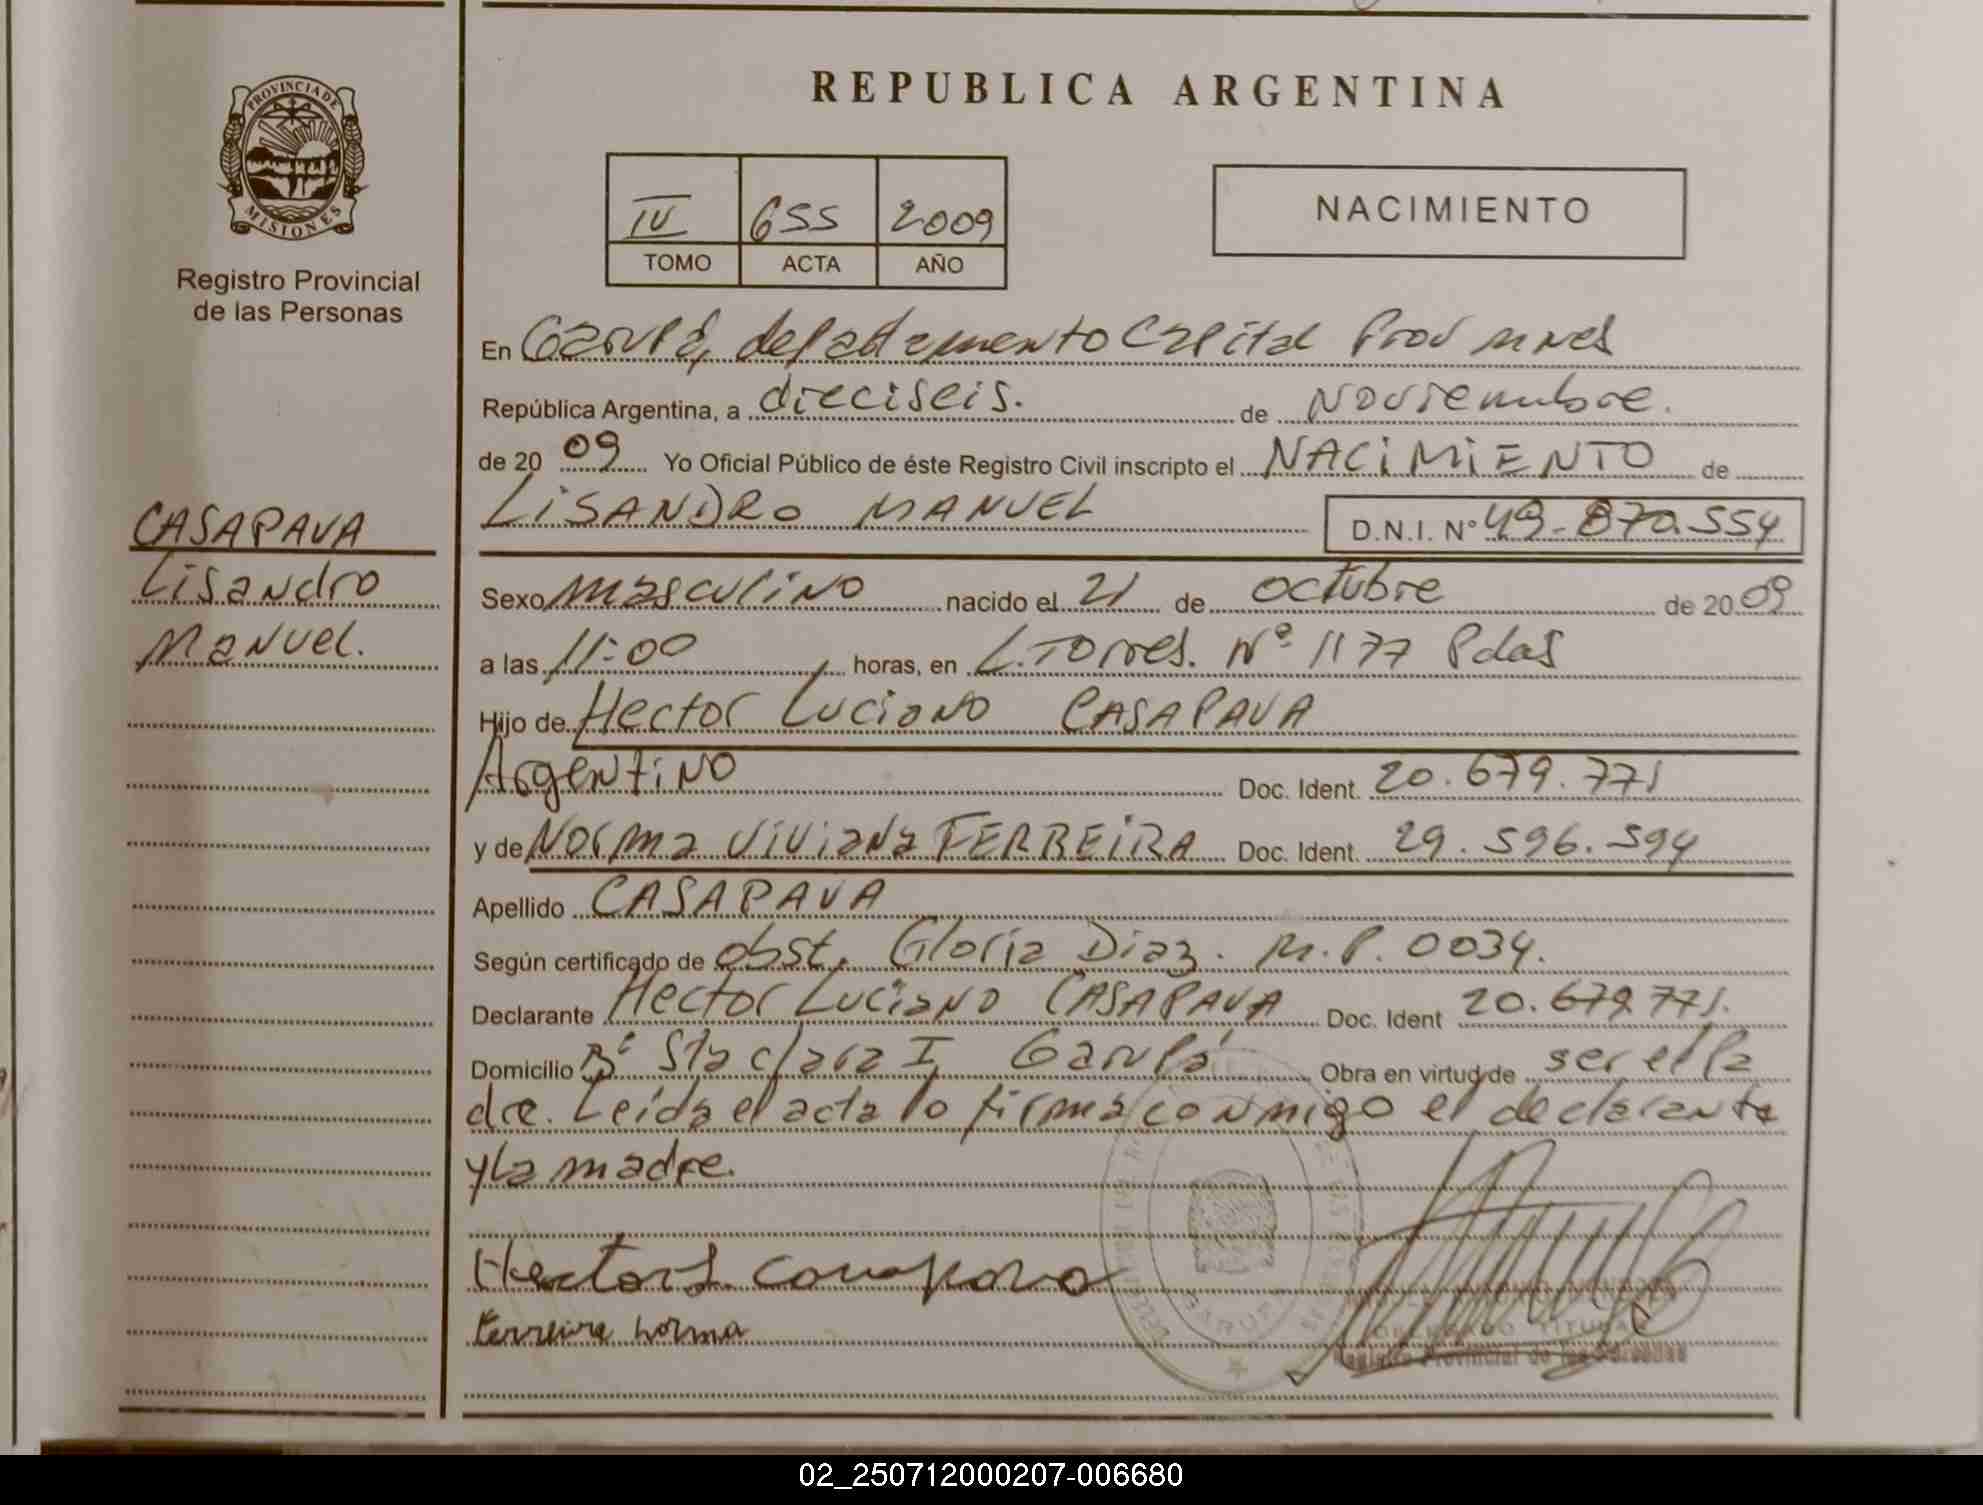 REPUBLICA ARGENTINA
PROVINCIA DE
MISIONES
Registro Provincial
de las Personas
IV 655 2009
TOMO ACTA AÑO
NACIMIENTO
En Garupá, departamento Capital Prov Mnes
República Argentina, a dieciseis. de Noviembre.
de 20 09 Yo Oficial Público de éste Registro Civil inscripto el NACIMIENTO de
LISANDRO MANUEL D.N.I. Nº 49-870.554
CASAPAVA
Lisandro
Manuel.
Sexo masculino nacido el 21 de octubre de 20 09
a las 11:00 horas, en L. Torres. Nº 1177 Pdas
Hijo de Hector Luciano CASAPAVA
Argentino Doc. Ident. 20.679.771
y de Norma Viviana FERREIRA Doc. Ident. 29.596.594
Apellido CASAPAVA
Según certificado de obst. Gloria Diaz. M.P. 0034.
Declarante Hector Luciano CASAPAVA Doc. Ident 20.679.771.
Domicilio Bº Sta clara I Garupá Obra en virtud de ser el Pa
dre. Leida el acta lo firma conmigo el declarante
y la madre.
Hector L. Casapava
Ferreira Norma
GARUPA
DELEGADO TITULAR
Registro Provincial de las Personas
02_250712000207-006680